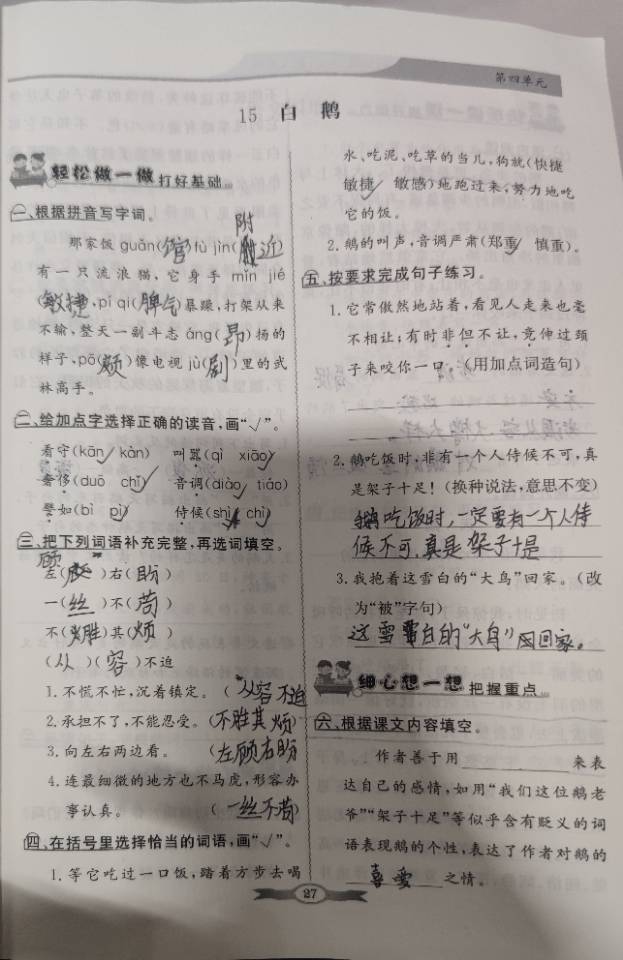 第四单元
15 白 鹅
轻松做一做 打好基础
一、根据拼音写字词。
附
那家饭 guǎn(馆)fù jìn(近)
有一只流浪猫，它身手 mǐn jié
(敏捷)，pí qi(脾气)暴躁，打架从来
不输，整天一副斗志 áng(昂)扬的
样子，pō(颇)像电视 jù(剧)里的武
林高手。
二、给加点字选择正确的读音，画“√”。
看守(kān√ kàn) 叫嚣(qì xiāo√)
奢侈(duō chǐ√) 音调(diào√ tiáo)
譬如(bì pì√) 侍候(shì chì√)
三、把下列词语补充完整，再选词填空。
顾
左( )右(盼)
一(丝)不(苟)
不(胜)其(烦)
(从)(容)不迫
1.不慌不忙，沉着镇定。(从容不迫
2.承担不了，不能忍受。(不胜其烦)
3.向左右两边看。 (左顾右盼
4.连最细微的地方也不马虎，形容办
事认真。 (一丝不苟)
四、在括号里选择恰当的词语，画“√”。
1.等它吃过一口饭，踏着方步去喝
水、吃泥、吃草的当儿，狗就(快捷
敏捷√ 敏感)地跑过来，努力地吃
它的饭。
2.鹅的叫声，音调严肃(郑重√ 慎重)。
五、按要求完成句子练习。
1.它常傲然地站着，看见人走来也毫
不相让；有时非但不让，竟伸过颈
子来咬你一口。(用加点词造句)
2.鹅吃饭时，非有一个人侍候不可，真
是架子十足！(换种说法，意思不变)
鹅吃饭时，一定要有一个人侍
候不可，真是架子十足
3.我抱着这雪白的“大鸟”回家。(改
为“被”字句)
这雪白的“大鸟”回家。
细心想一想 把握重点
六、根据课文内容填空。
作者善于用 来表
达自己的感情，如用“我们这位鹅老
爷”“架子十足”等似乎含有贬义的词
语表现鹅的个性，表达了作者对鹅的
喜爱 之情。
27